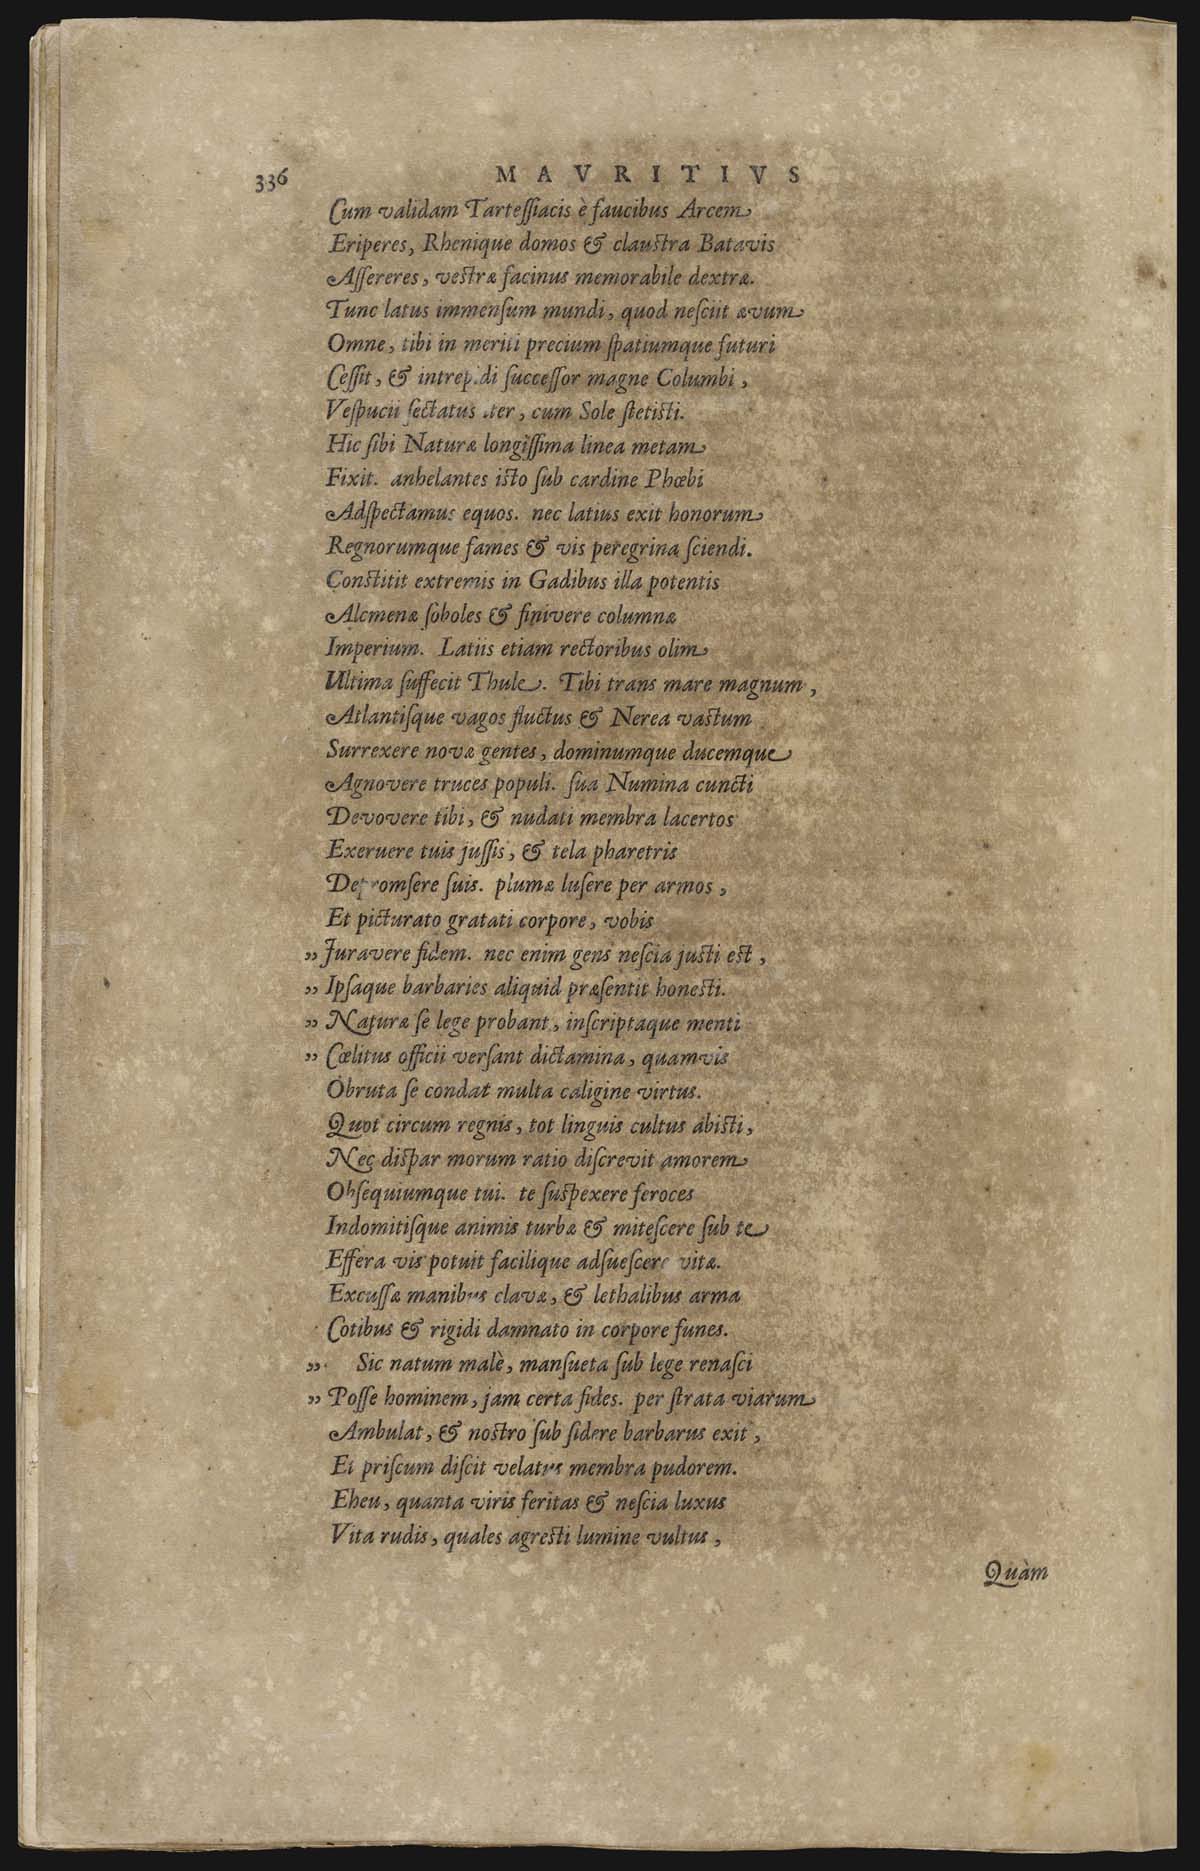 336
MAVRITIVS
Cum validam Tartessiacis è faucibus Arcem
Eriperes, Rhenique domos & claustra Batavis
Assereres, vestræ facinus memorabile dextræ.
Tunc latus immensum mundi, quod nesciit ævum
Omne, tibi in meriti precium spatiumque futuri
Cessit, & intrepidi successor magne Columbi,
Vespucii sectatus iter, cum Sole stetisti.
Hic sibi Naturæ longissima linea metam
Fixit. anhelantes isto sub cardine Phœbi
Adspectamus equos. nec latius exit honorum
Regnorumque fames & vis peregrina sciendi.
Constitit extremis in Gadibus illa potentis
Alcmenæ soboles & finivere columnæ
Imperium. Latiis etiam rectoribus olim
Ultima suffecit Thule. Tibi trans mare magnum,
Atlantisque vagos fluctus & Nerea vastum
Surrexere novæ gentes, dominumque ducemque
Agnovere truces populi. sua Numina cuncti
Devovere tibi, & nudati membra lacertos
Exeruere tuis jussis, & tela pharetris
Depromsere suis. plumæ lusere per armos,
Et picturato gratati corpore, vobis
„ Juravere fidem. nec enim gens nescia justi est,
„ Ipsaque barbaries aliquid præsentit honesti.
„ Naturæ se lege probant, inscriptaque menti
„ Cœlitus officii versant dictamina, quamvis
Obruta se condat multa caligine virtus.
Quot circum regnis, tot linguis cultus abisti,
Nec dispar morum ratio discrevit amorem
Obsequiumque tui. te suspexere feroces
Indomitisque animis turbæ & mitescere sub te
Effera vis potuit facilique adsuescere vitæ.
Excussæ manibus clavæ, & lethalibus arma
Cotibus & rigidi damnato in corpore funes.
„ Sic natum malè, mansueta sub lege renasci
„ Posse hominem, jam certa fides. per strata viarum
Ambulat, & nostro sub sidere barbarus exit,
Et priscum discit velatus membra pudorem.
Eheu, quanta viris feritas & nescia luxus
Vita rudis, quales agresti lumine vultus,
Quàm